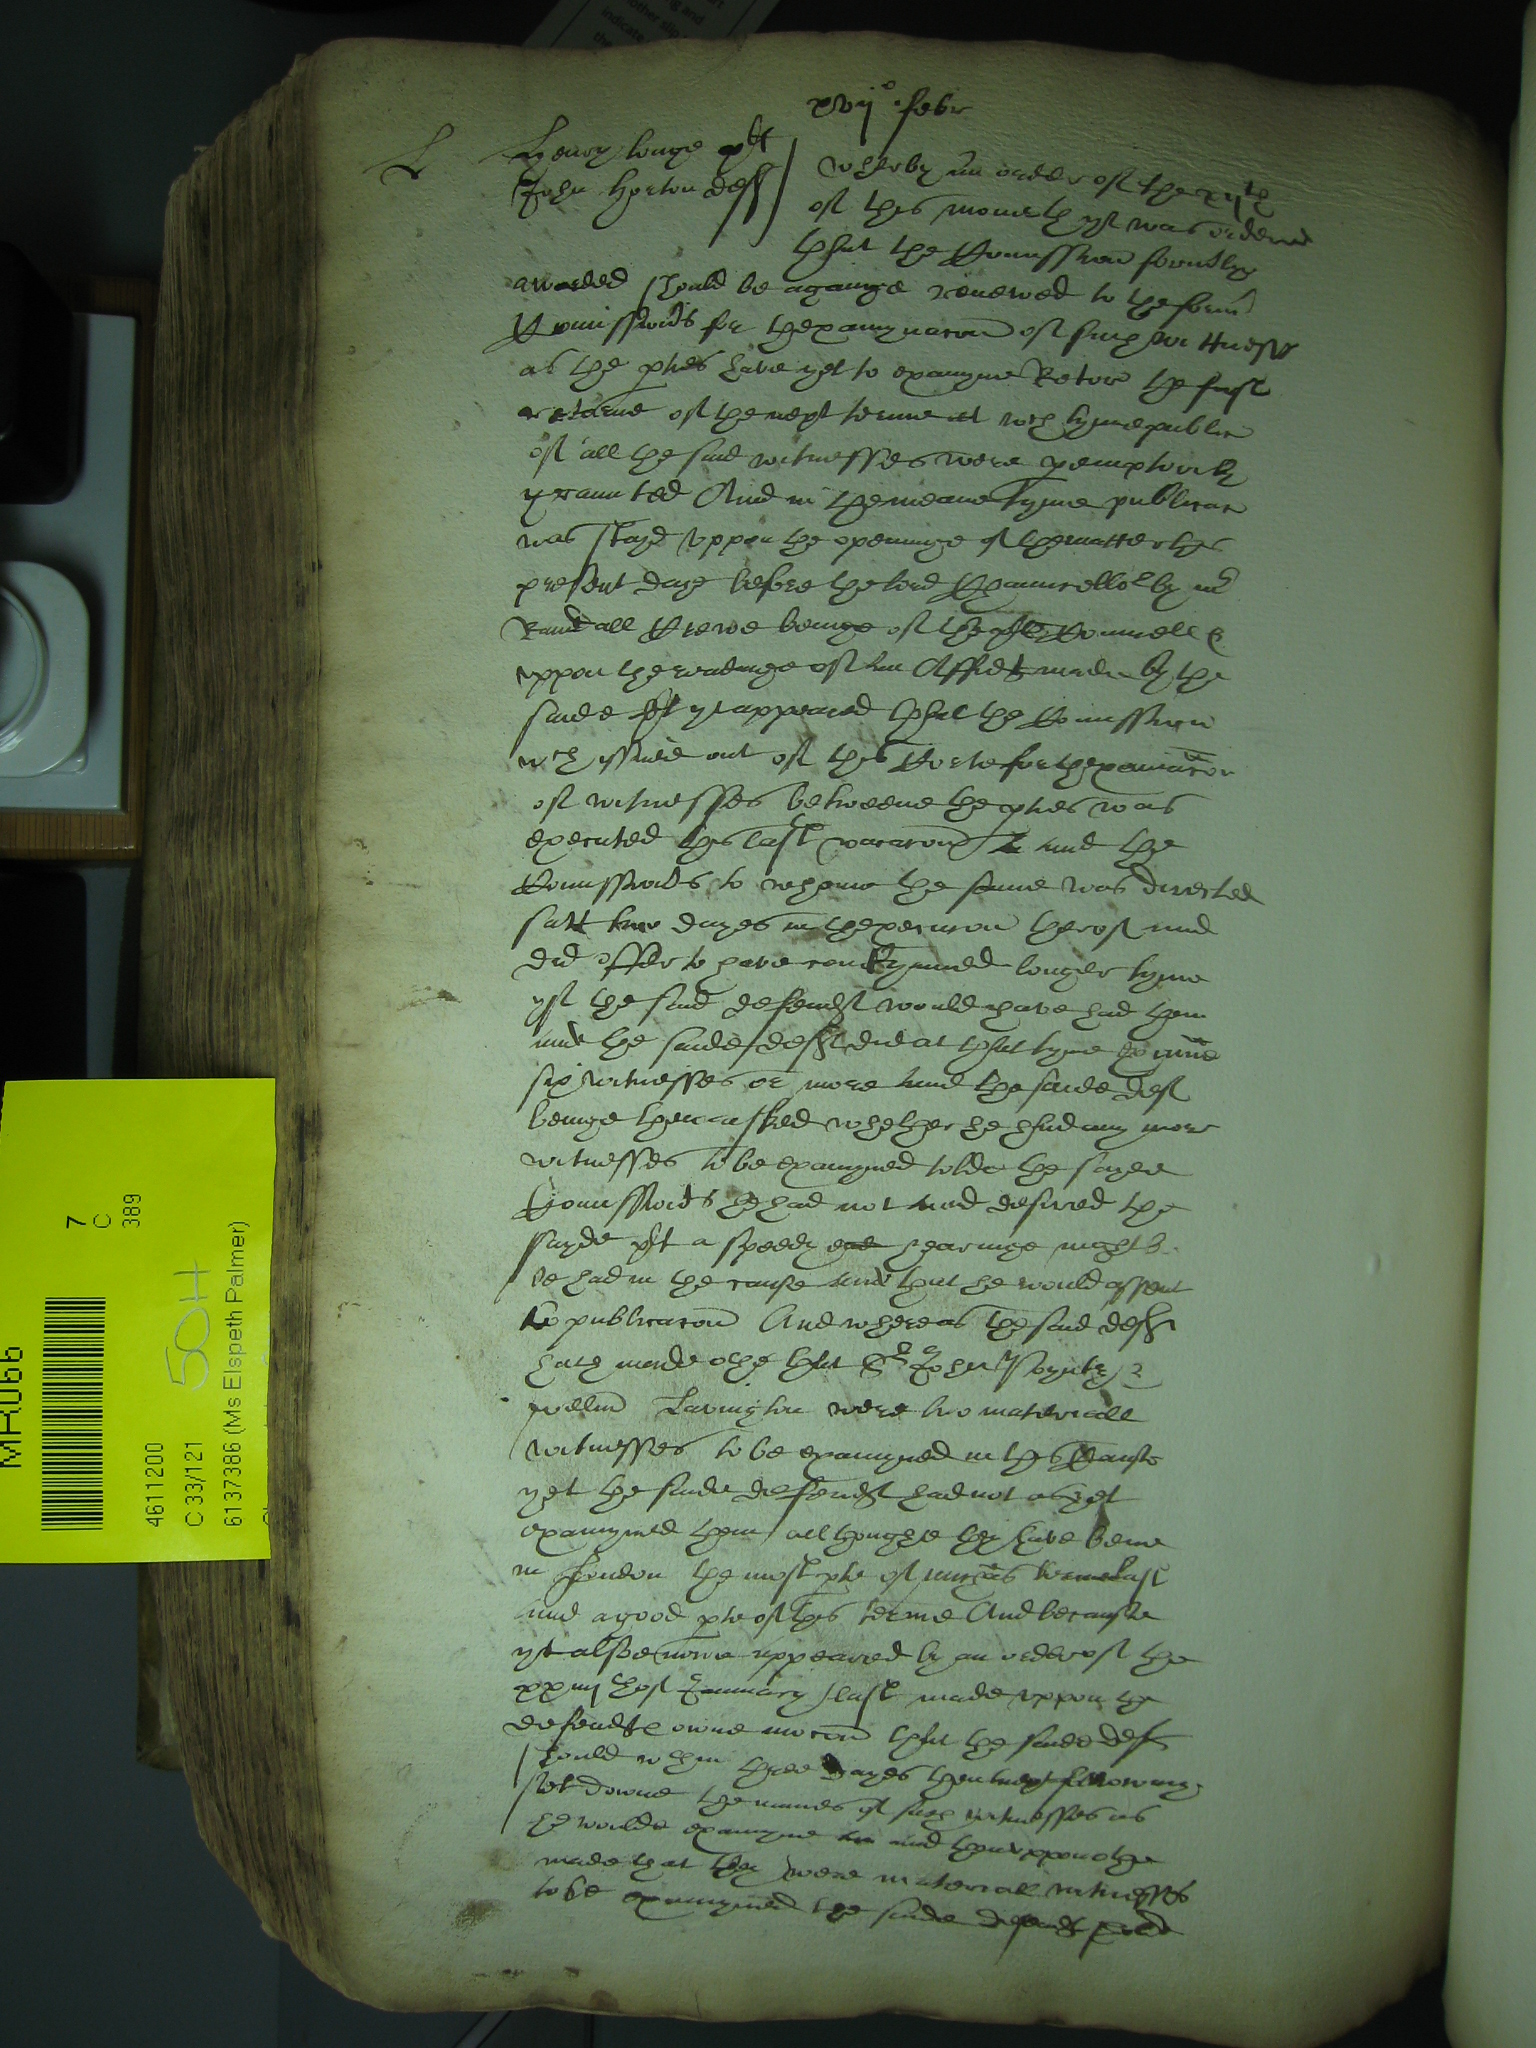 xvij° febr
L
Henry longe plt
John Horton deft
wherby an order of the xijth
of this moneth yt was ordered
that the Comission formerly
awarded should be agayne renewed to the form
Comissions for thexamynacon of such wittnesses
as the pties have yet to examyne Retor the first
retorne of the next terme at wch tyme public
of all the said witnesses were pemptorily
graunted And in the meane tyme publicac
was stayd uppon the openinge of the matter this
present daye before the lord Chauncellor by mr
Randall Crewe beinge of the plt Counsell &
uppon the readinge of an Affidt made by the
saide plt yt appeared that the Comission
wch issued out of this Corte for thexaminacon
of witnesses betweene the pties was
executed this last vacacon and the
Comissions to whome the same was directed
satt two dayes in thexecucon therof and
did offer to have contynued longer tyme
yf the said defendt would have had them
and the saide deft did at that tyme examine
six witnesses or more and the saide deft
beinge then asked whether he had any more
witnesses to be examyned tolde the sayde
Comissions he had not and desired the
sayde plt a speedy hearinge might
be had in the cause and that he would assent
to publicacon And whereas the said deft
hath made othe that Sr John Poyntz &
willm Lavington were two materiall
witnesses to be examyned in this Cause
yet the saide defendt had not as yet
examyned them allthoughe they have bene
in London the most pte of michas terme last
and a good pte of this terme And because
yt also nowe appeared by an order of the
xxiiijth of January last made uppon the
defendts owne mocon that the saide deft
should wthin three dayes then next followinge
set downe the names of such witnesses as
he woulde examyne and then uppon othe
made that they were materiall witnesses
to be examyned the saide defendt
MR066
7
C
389
50H
4611200
C 33/121
6137386 (Ms Elspeth Palmer)
ing and
other slip
indicate
the